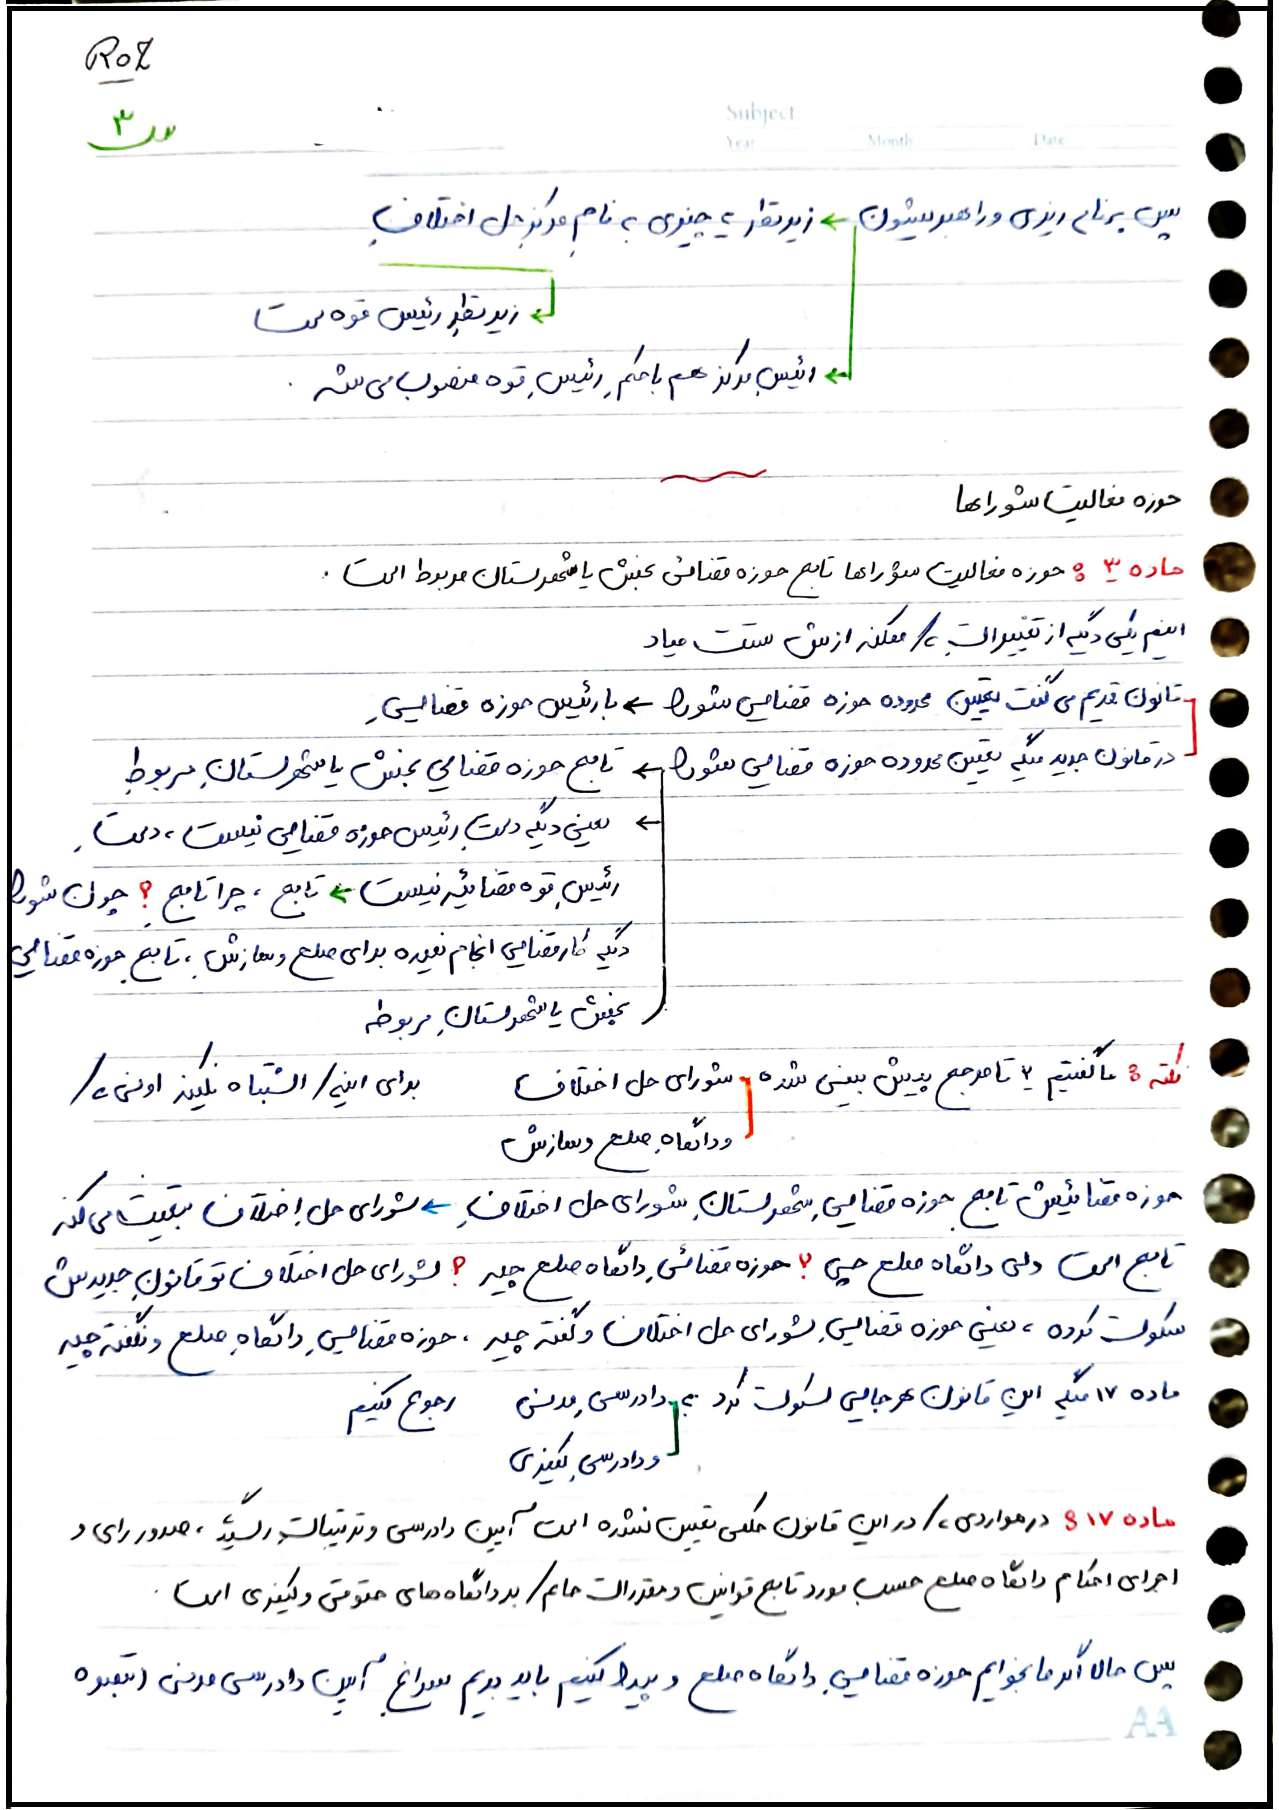 RoZ
ص ۳
Subject
Year Month Date
پس برنامه ریزی و راهبریشون ← زیرنظر یه چیزی به نام مرکز حل اختلاف
← زیرنظر رئیس قوه ست
← رئیس مرکز هم با حکم رئیس قوه منصوب می شه .
حوزه فعالیت شوراها
ماده ۳ : حوزه فعالیت شوراها تابع حوزه قضائی بخش یا شهرستان مربوط است .
اینم یکی دیگه از تغییرات / ممکنه ازش تست میاد
قانون قدیم می گفت تعیین محدوده حوزه قضایی شورا ← با رئیس حوزه قضایی
در قانون جدید میگه تعیین محدوده حوزه قضایی شورا ← تابع حوزه قضایی بخش یا شهرستان مربوط
← یعنی دیگه دست رئیس حوزه قضایی نیست ، دست
رئیس قوه قضائیه نیست ← تابع ، چرا تابع ؟ چون شورا
دیگه کار قضایی انجام نمیده برای صلح و سازش ، تابع حوزه قضایی
بخش یا شهرستان مربوطه
نکته : ما گفتیم ۲ تا مرجع پیش بینی شده شورای حل اختلاف برای اینه / اشتباه نکنید اونی /
و دادگاه صلح و سازش
حوزه قضائیش تابع حوزه قضایی شهرستان شورای حل اختلاف ← شورای حل اختلاف تبعیت می کنه
تابع است ولی دادگاه صلح چی ؟ حوزه قضائی دادگاه صلح چیه ؟ شورای حل اختلاف تو قانون جدیدش
سکوت کرده ، یعنی حوزه قضایی شورای حل اختلاف و گفته چیه ، حوزه قضایی دادگاه صلح و نگفته چیه
ماده ۱۷ میگه این قانون هر جایی سکوت کرد به دادرسی مدنی رجوع کنیم
و دادرسی کیفری
ماده ۱۷ : در مواردی / در این قانون حکمی تعیین نشده است آیین دادرسی و ترتیبات رسیدگی ، صدور رای و
اجرای احکام دادگاه صلح حسب مورد تابع قوانین و مقررات حاکم / بر دادگاه های حقوقی و کیفری است .
پس حالا اگر ما بخوایم حوزه قضایی دادگاه صلح و پیدا کنیم باید بریم سراغ آیین دادرسی مدنی
AA